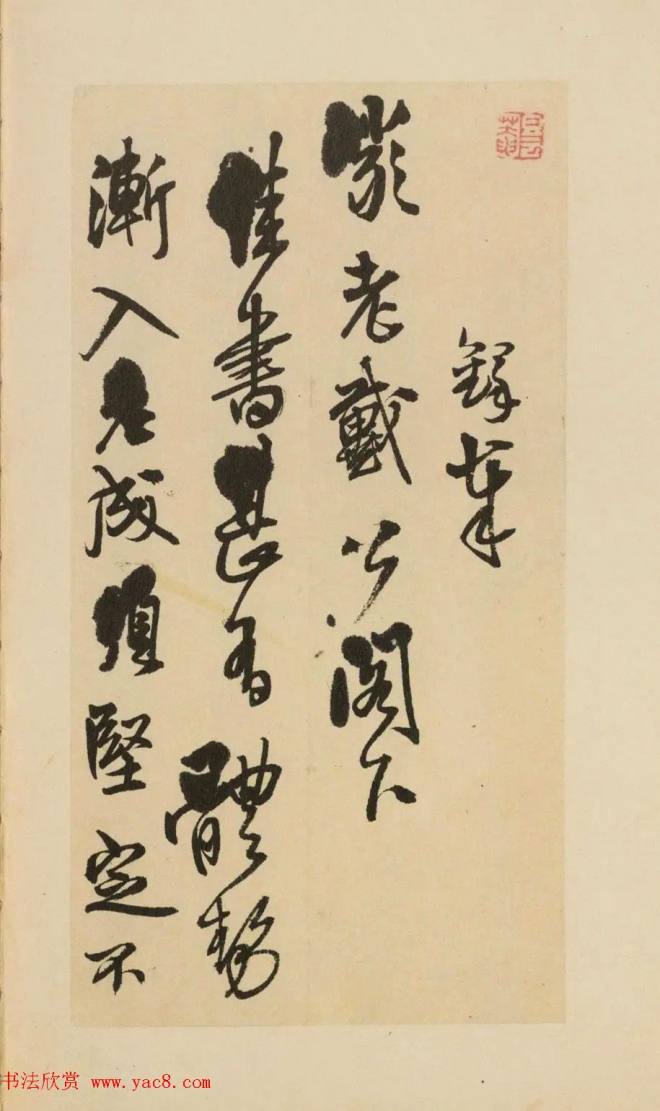 鐸
巖老戴公閣下
佳書甚有體勢
漸入老成須堅定不
书法欣赏 www.yac8.com